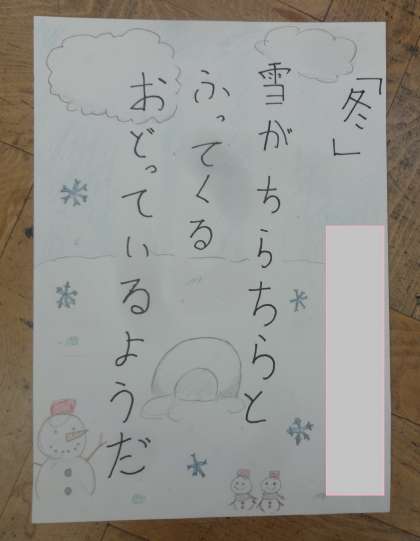 「冬」
雪がちらちらと
ふってくる
おどっているようだ